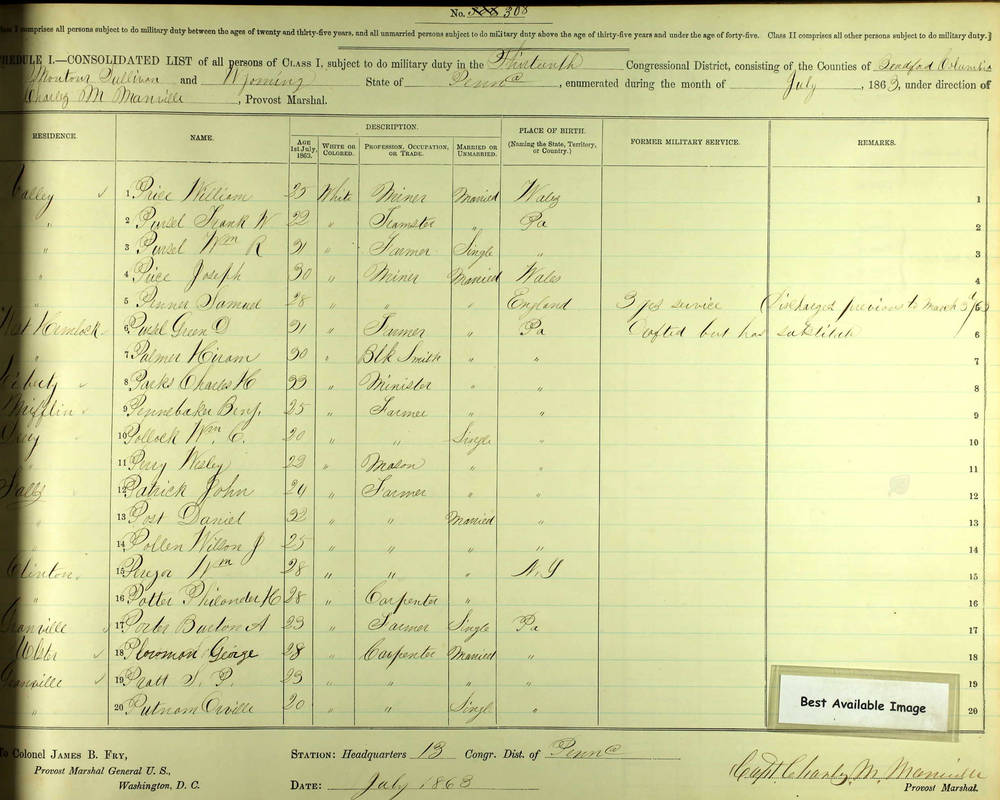 No. 388 308
Class I comprises all persons subject to do military duty between the ages of twenty and thirty-five years, and all unmarried persons subject to do military duty above the age of thirty-five years and under the age of forty-five. Class II comprises all other persons subject to do military duty.]
SCHEDULE I.—CONSOLIDATED LIST of all persons of CLASS I, subject to do military duty in the Thirteenth Congressional District, consisting of the Counties of Bradford Columbia
Montour Sullivan and Wyoming State of Penna, enumerated during the month of July, 1863, under direction of
Charles M Manville, Provost Marshal.
RESIDENCE. NAME. DESCRIPTION. PLACE OF BIRTH. (Naming the State, Territory, or Country.) FORMER MILITARY SERVICE. REMARKS.
AGE 1st July, 1863. WHITE OR COLORED. PROFESSION, OCCUPATION, OR TRADE. MARRIED OR UNMARRIED.
1 Price William 25 White Miner Married Wales 1
" 2 Pursel Frank W 22 " Teamster " Pa 2
" 3 Pursel Wm R 21 " Farmer Single " 3
" 4 Price Joseph 30 " Miner Married Wales 4
" 5 Penner Samuel 28 " " " England 3 yrs service Discharged previous to March 3/63 5
West Hemlock 6 Pursel Green D 31 " Farmer " Pa Drafted but has substitute 6
" 7 Palmer Hiram 30 " Blk Smith " " 7
Liberty 8 Parks Charles H 33 " Minister " " 8
Mifflin 9 Pennebaker Benj. 25 " Farmer " " 9
10 Pollock Wm. C. 20 " " Single " 10
" 11 Perry Wesley 22 " Mason " " 11
12 Patrick John 24 " Farmer " " 12
" 13 Post Daniel 32 " " Married " 13
" 14 Pollen Wilson J 25 " " " " 14
Clinton 15 Wm 28 " " " N.Y 15
" 16 Potter Philander H 28 " Carpenter " 16
Granville 17 Porter Burton A 23 " Farmer Single Pa 17
Ulster 18 Plowman George 28 " Carpenter Married " 18
Granville 19 Pratt S. P. 23 " " " " 19
" 20 Putnam Orville 20 " " Singl " 20
Best Available Image
To Colonel JAMES B. FRY,
Provost Marshal General U. S.,
Washington, D. C.
STATION: Headquarters 13 Congr. Dist. of Penna
DATE: July 1863
Capt. Charles M. Manville
Provost Marshal.